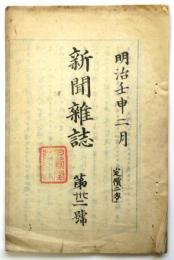 明治壬申二月
定價二匁
新聞雜誌
第卅二號